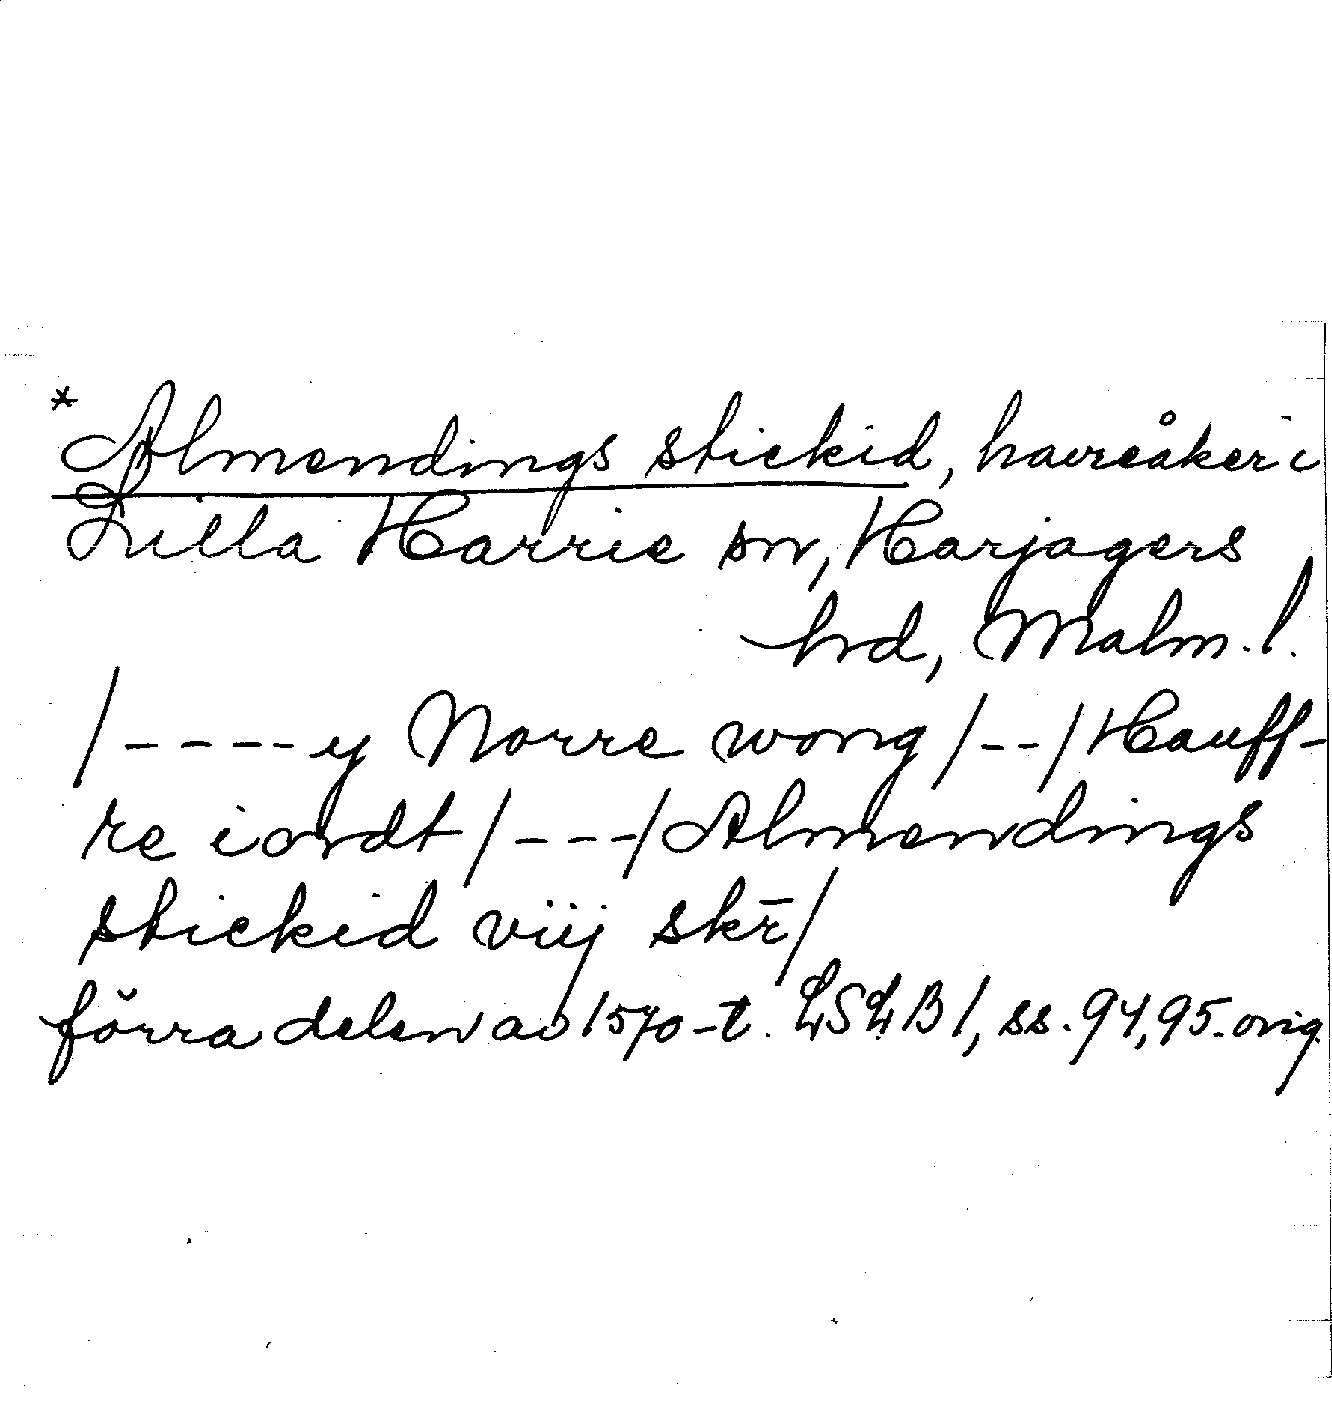 *Almendings stickid, havreåker i
Lilla Harrie sn, Harjagers
hd, Malm. l.
/----y Norre wong /--/ Hauff-
re iordt /---/ Almendings
stickid viij skr̄/
förra delen av 1570-t. LSLB 1, ss. 94, 95. orig.